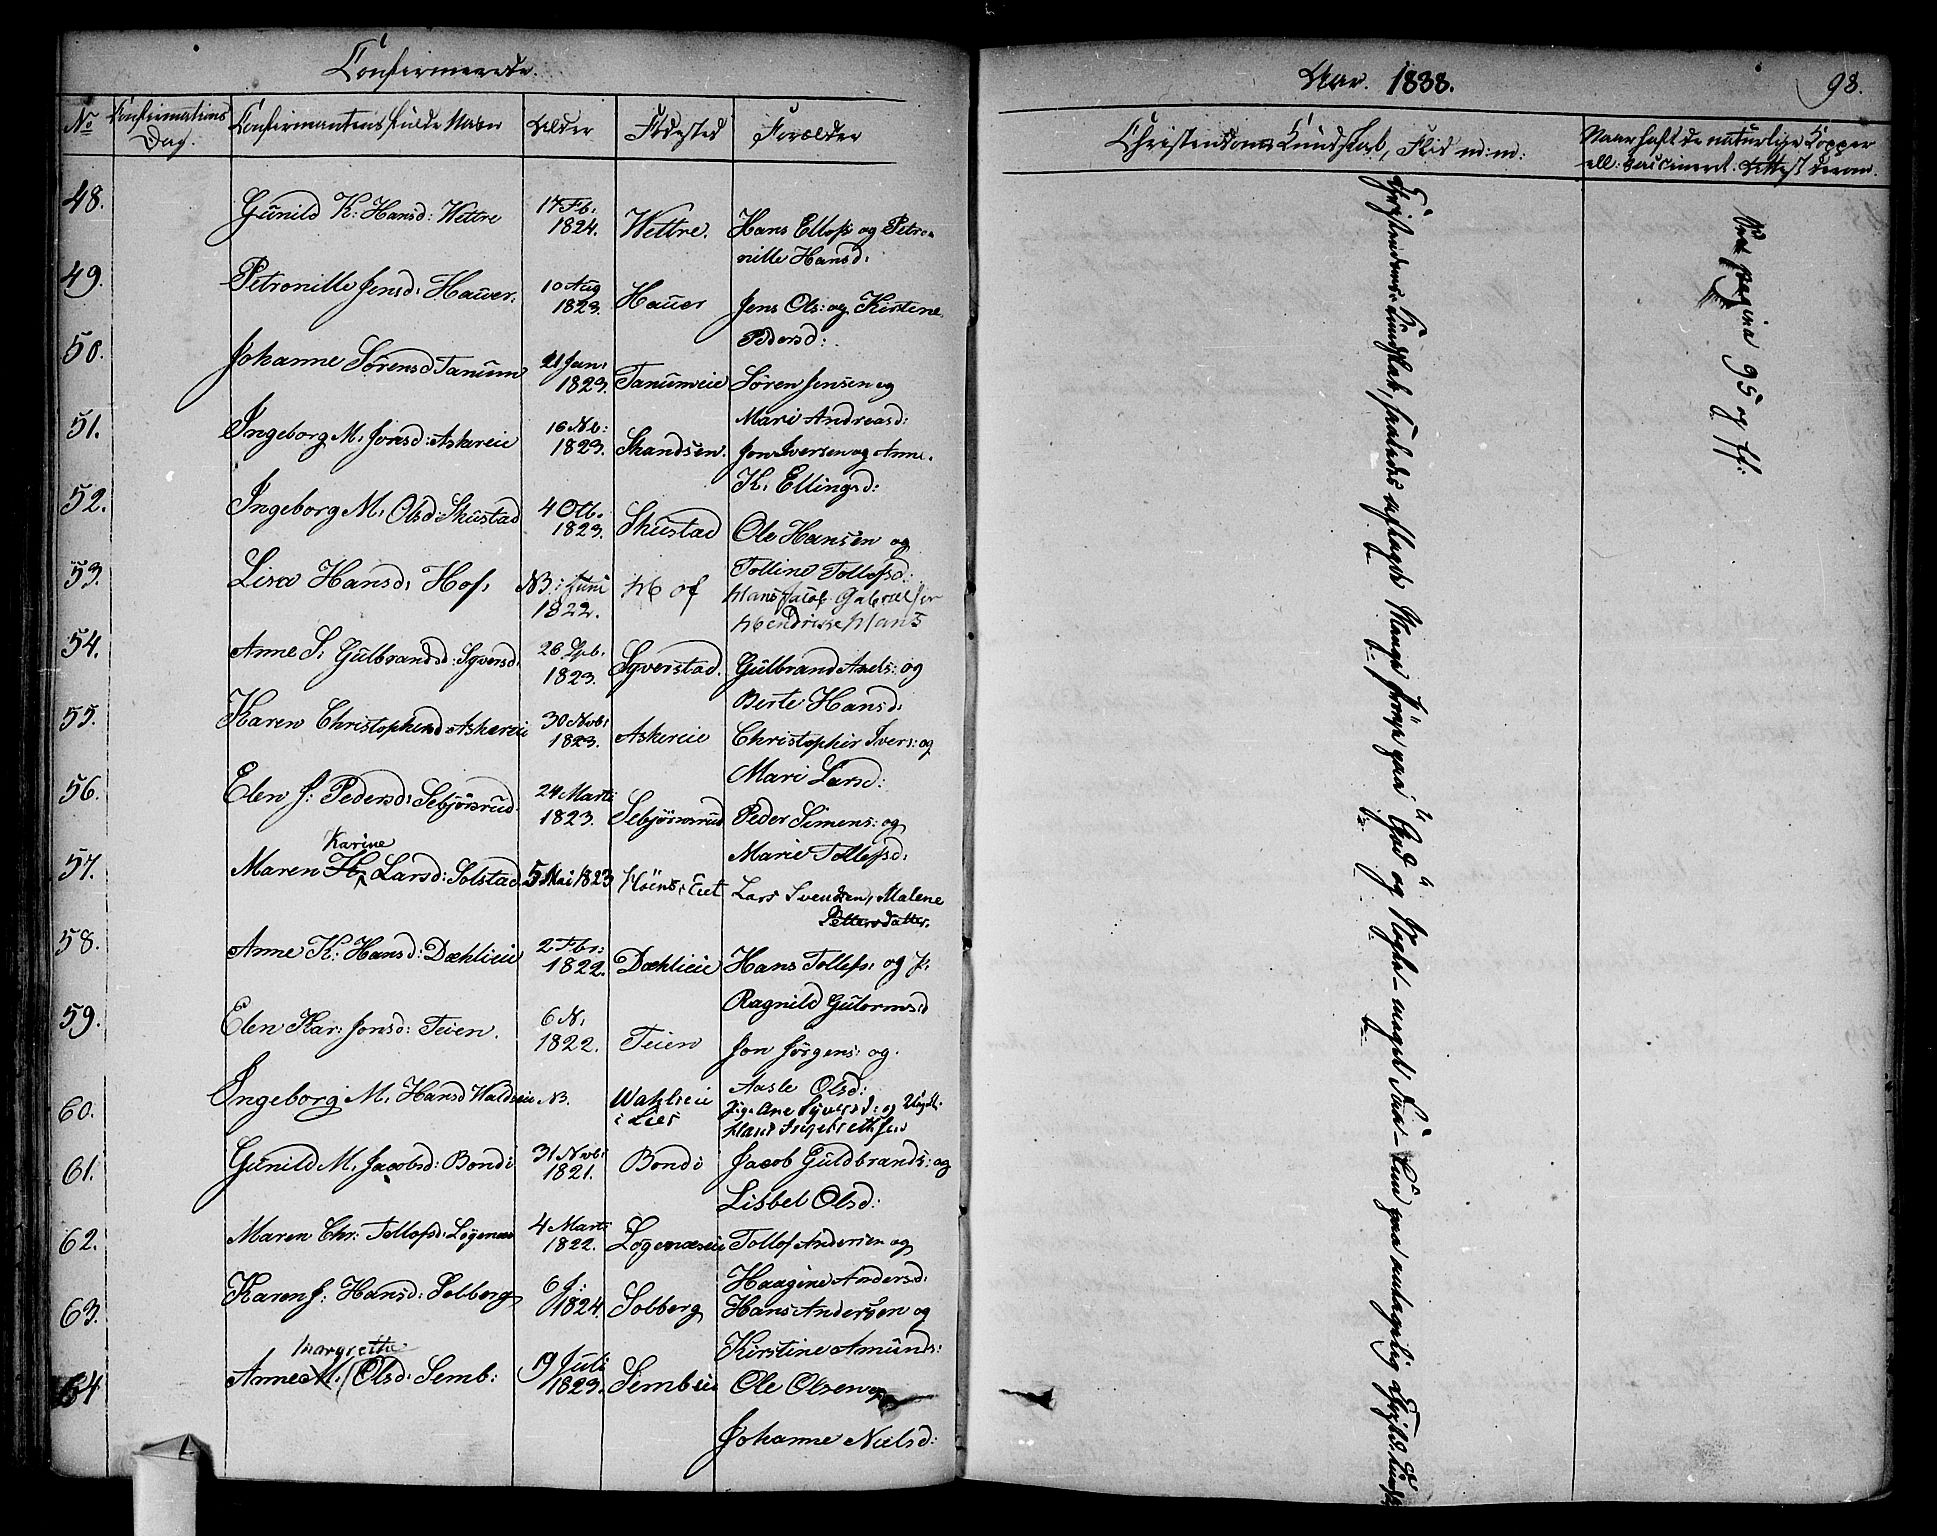 Confirmerede.
No Confirmations Dag. Confirmantens fulde Navn Alder Fødested Forældre
48. Gunild K: Hansd: Wettre 17 Fb: 1824. Wettre. Hans Ellefs: og Petro-
nille Hansd:
49. Petronille Jensd: Hauer. 10 Aug 1823. Hauer Jens Ols: og Kirstene
Pedersd:
50. Johanne Sörensd Tanum 21 Jan: 1823. Tanumeie Sören Jensen og
Mari Andreasd:
51. Ingeborg M. Jonsd: Askereie 16 Nb: 1823. Skandsen. Jon Iversen og Anne
K. Ellingsd:
52. Ingeborg M. Olsd: Skustad 4 Otb. 1823. Skustad Ole Hansen og
Tolline Tollefsd:
53. Lisa Hansd: Hof. NB: Juni 1822. Hof Hans Jacob Gabrielsen
Hendrikke Hans
54. Anne S. Gulbrandsd: Syversd: 26 Spb. 1823. Syverstad. Gulbrand Axels: og
Berte Hansd:
55. Karen Christophersd Askereie 30 Nvb: 1823. Askereie Christopher Ivers: og
Mari Larsd:
56. Elen J: Pedersd: Sebjörsrud 24 Marti 1823. Sebjörnsrud Peder Simens: og
Marie Tollefsd:
Karine
57. Maren H. Larsd: Solstad 5 Mai 1823 Höens Eiet Lars Svendsen, Malene
Pettersdatter.
58. Anne K: Hansd: Dæhlieie 2 Fbr: 1822. Dæhlieie Hans Tollefs: og
Ragnild Gutormsd
59. Elen Kar: Jonsd: Teien. 6 N. 1822. Teien Jon Jörgens: og
Aasle Olsd:
60. Ingeborg M. Hansd NB. i Lier pige Ane Syversd: og
Hans Ingebrethsen
61. Gunild M. Jacobsd: Bondi 31 Nvb: 1821. Bondi Jacob Guldbrands: og
Lisbel Olsd:
62. Maren Chr: Tollofsd: Løgenæs 4 Marti 1822. Løgenæseie Tollof Andersen og
Haagine Andersd:
63. Karen J: Hansd: Solberg 6 J: 1824 Solberg Hans Andersen og
Kirstine Amunds:
Margrethe
64 Anne M. Olsd: Semb: 19 Juli 1823. Sembeie Ole Olsen og
Johanne Nielsd:
Aar. 1838. 98.
Christendoms Kundskab, Flid m: m: Naar haft de naturlige Kopper
ell: vaccineret. Attest derom.
Christendoms-Kundskab, saaledes aflagde Mange Prøve paa
pagina 95 og ff: